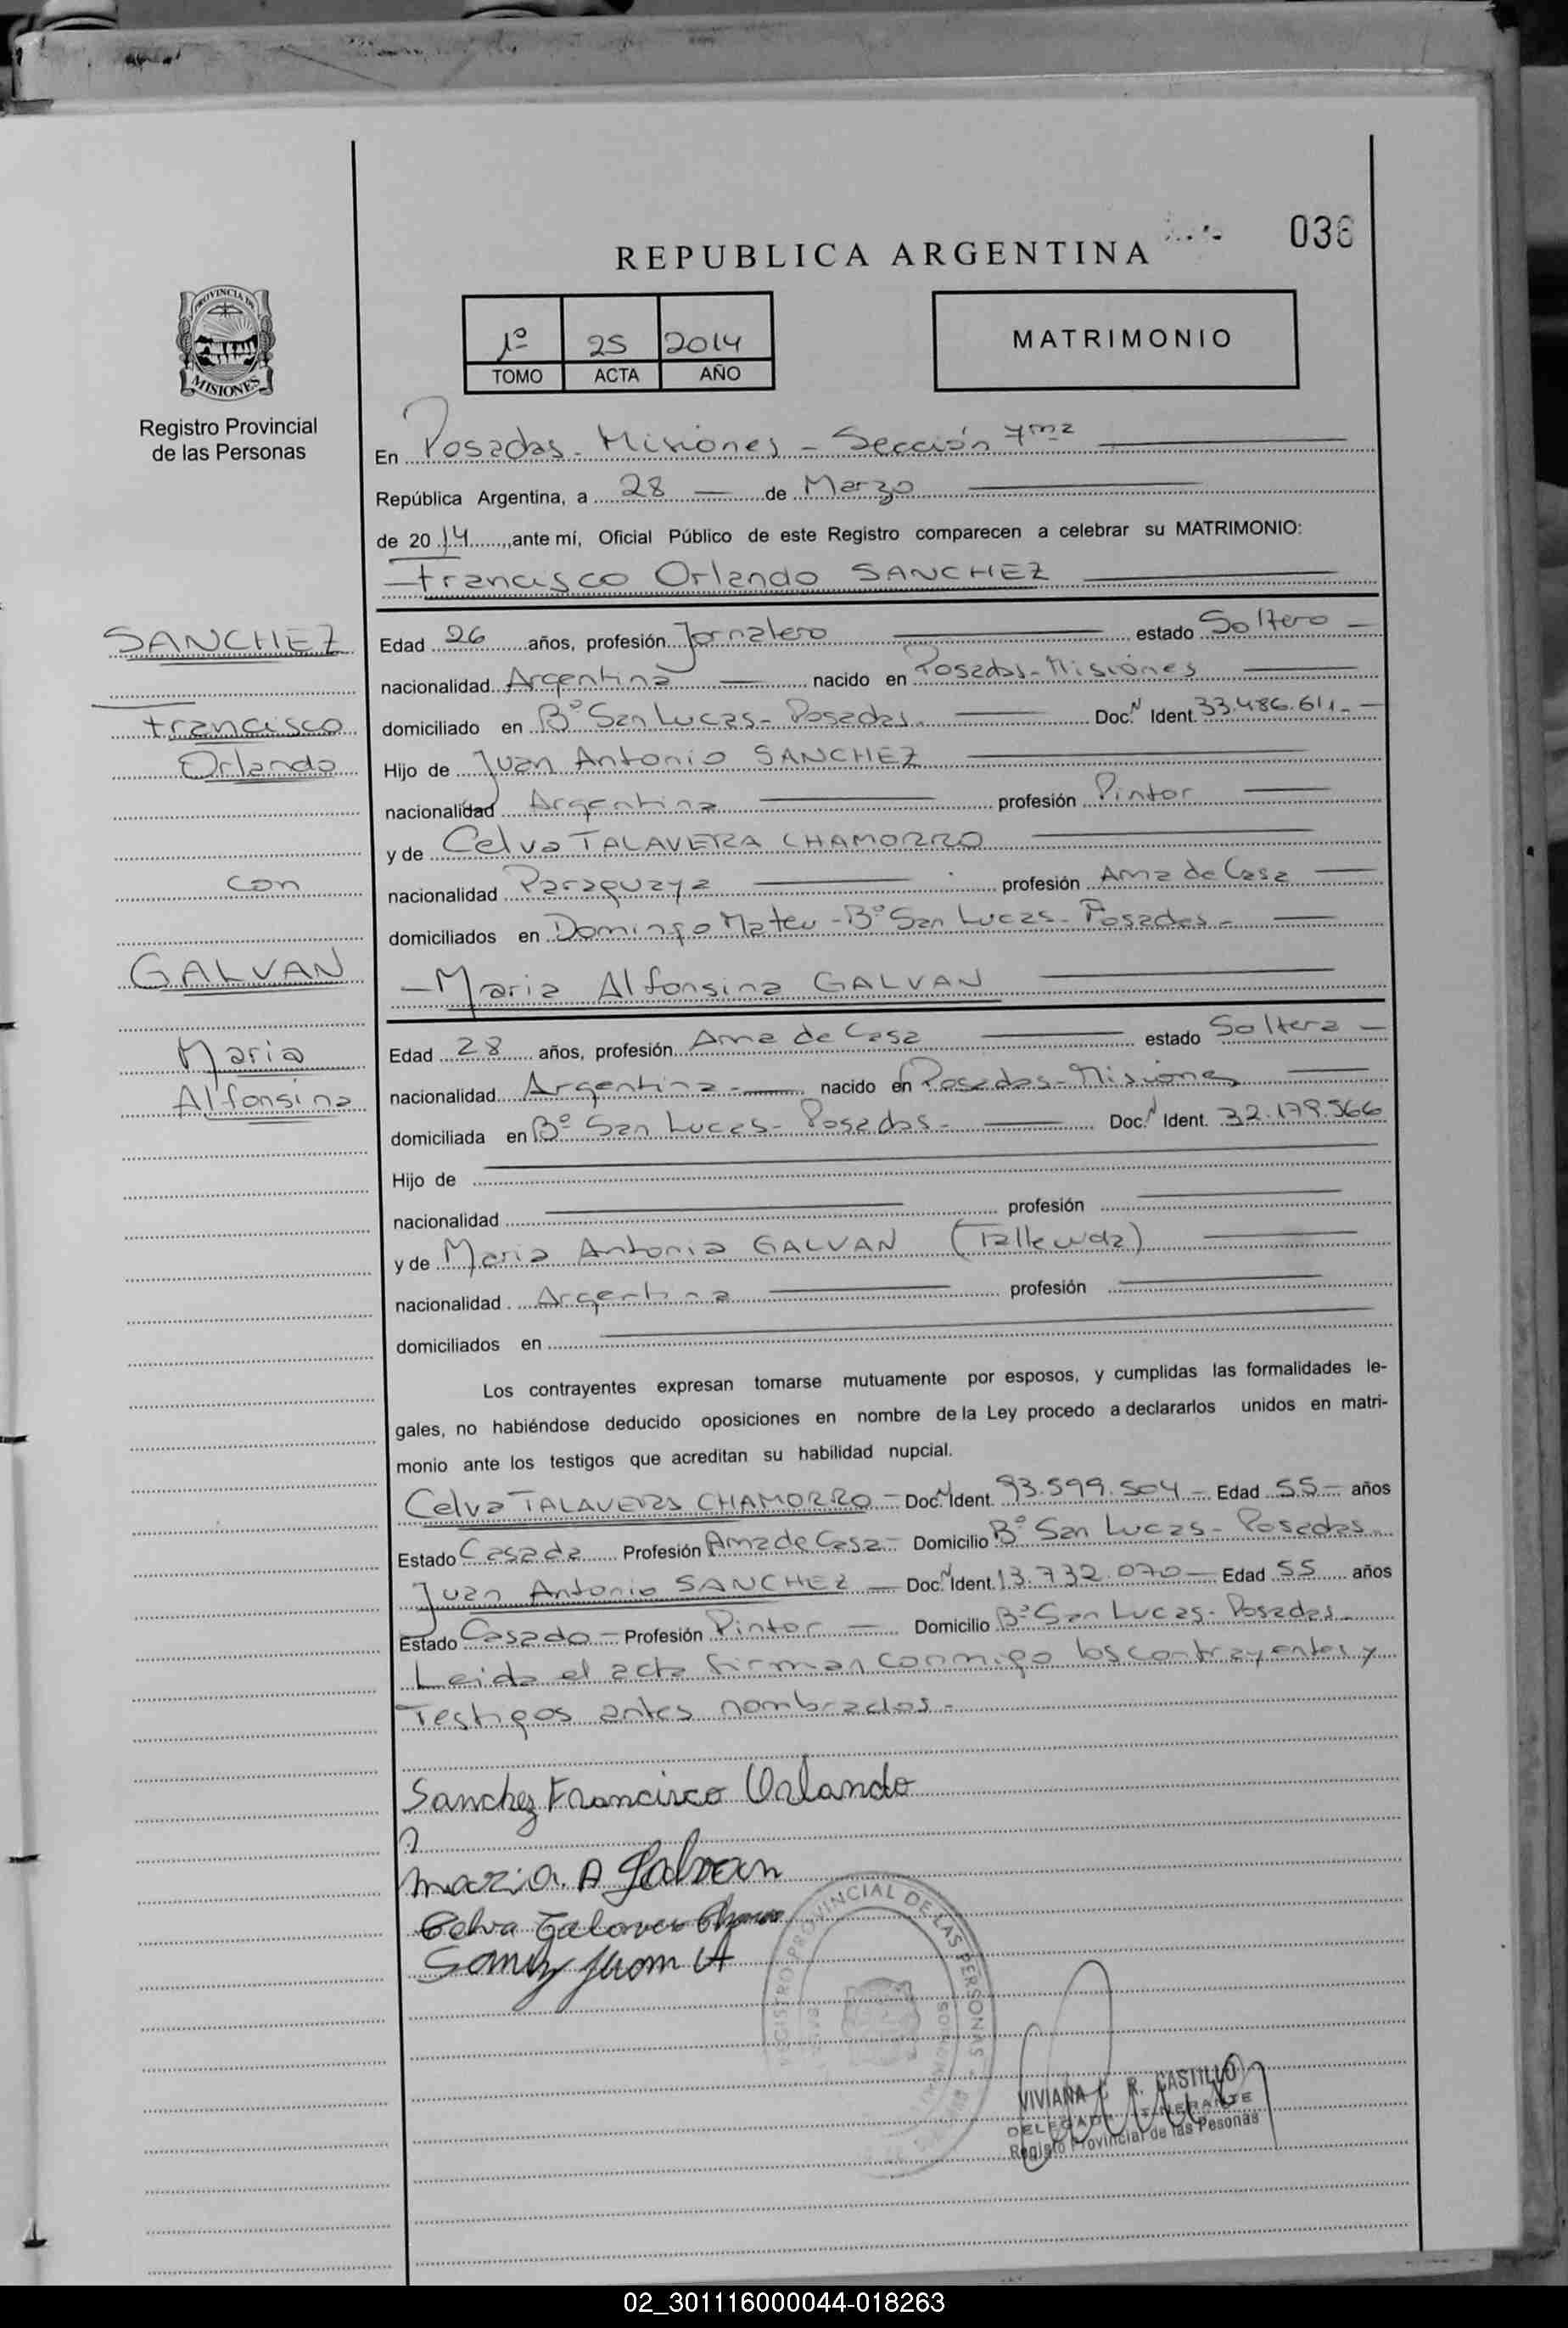 REPUBLICA ARGENTINA
036
PROVINCIA DE MISIONES
Registro Provincial
de las Personas
1º 25 2014
TOMO ACTA AÑO
MATRIMONIO
En Posadas - Misiones - Sección 7ma
República Argentina, a 28 de Marzo
de 2014, ante mí, Oficial Público de este Registro comparecen a celebrar su MATRIMONIO:
Francisco Orlando SANCHEZ
SANCHEZ
Francisco
Orlando
con
GALVAN
Maria
Alfonsina
Edad 26 años, profesión Jornalero estado Soltero
nacionalidad Argentina nacido en Posadas - Misiones
domiciliado en Bº San Lucas - Posadas. Doc. N Ident. 33.486.611.-
Hijo de Juan Antonio SANCHEZ
nacionalidad Argentina profesión Pintor
y de Celva TALAVERA CHAMORRO
nacionalidad Paraguaya profesión Ama de Casa
domiciliados en Domingo Mateu - Bº San Lucas - Posadas -
Maria Alfonsina GALVAN
Edad 28 años, profesión Ama de Casa estado Soltera
nacionalidad Argentina nacido en Posadas - Misiones
domiciliada en Bº San Lucas - Posadas - Doc. N Ident. 32.179.566
Hijo de
nacionalidad profesión
y de Maria Antonia GALVAN (Fallecida)
nacionalidad Argentina profesión
domiciliados en
Los contrayentes expresan tomarse mutuamente por esposos, y cumplidas las formalidades le-
gales, no habiéndose deducido oposiciones en nombre de la Ley procedo a declararlos unidos en matri-
monio ante los testigos que acreditan su habilidad nupcial.
Celva TALAVERA CHAMORRO - Doc. N Ident. 93.599.504 - Edad 55 - años
Estado Casada Profesión Ama de Casa - Domicilio Bº San Lucas - Posadas
Juan Antonio SANCHEZ - Doc. N Ident. 13.732.070 - Edad 55 años
Estado Casado - Profesión Pintor - Domicilio Bº San Lucas - Posadas -
Leida el acta firman conmigo los contrayentes y
Testigos antes nombrados -
Sanchez Francisco Orlando
Maria. A Galvan
Celva Talavera
Juan A
REGISTRO PROVINCIAL DE LAS PERSONAS
VIVIANA R. CASTILLO
DELEGADA ITINERANTE
Registo Provincial de las Pesonas
02_301116000044-018263